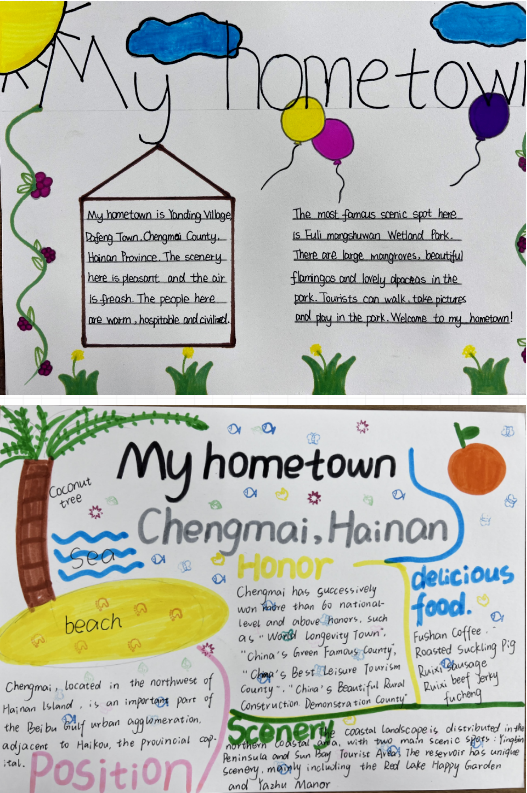 My hometown
My hometown is Yanding Village
Dafeng Town, Chengmai County,
Hainan Province. The scenery
here is pleasant and the air
is freash. The people here
are warm, hospitable and civilized.
The most famous scenic spot here
is Fuli mangshuwan Wetland Park.
There are large mangroves, beautiful
flamingos and lovely alpacas in the
park. Tourists can walk, take pictures
and play in the park. Welcome to my hometown!
My hometown
Chengmai, Hainan
Coconut
tree
Sea
beach
Honor
Chengmai has successively
won more than 60 national-
level and above honors, such
as "World Longevity Town".
"China's Green Famous County",
"China's Best Leisure Tourism
County". "China's Beautiful Rural
Construction Demonstration County"
delicious
food.
Fushan Coffee.
Roasted Suckling Pig
Ruixi sausage
Ruixi beef jerky
fucheng
Chengmai, located in the northwest of
Hainan Island, is an important part of
the Beibu Gulf urban agglomeration,
adjacent to Haikou, the provincial cap-
ital.
Position
Scenery
The coastal landscape is distributed in the
northern coastal area, with two main scenic spots: Yingbin
Peninsula and Sun Bay Tourist Area. The reservoir has unique
scenery, mainly including the Red Lake Happy Garden
and Yazhu Manor